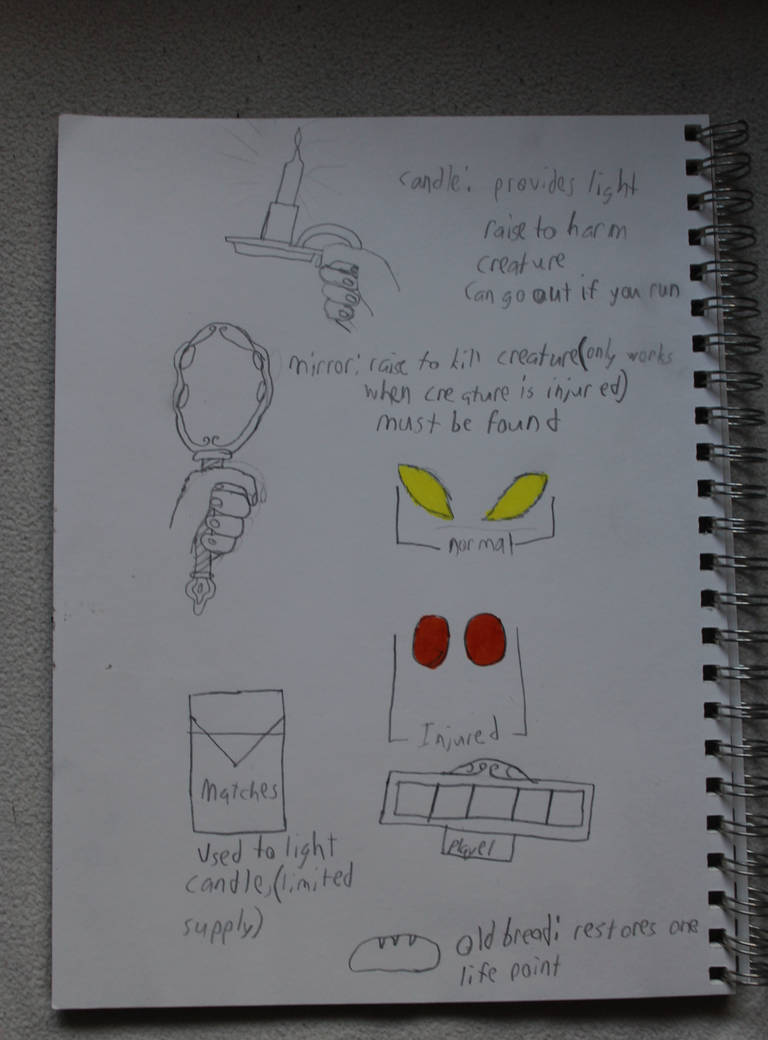 candle: provides light
raise to harm
creature
Can go out if you run
mirror: raise to kill creature (only works
when creature is injured)
must be found
normal
Injured
Matches
Used to light
candle, (limited
supply)
player
Old bread: restores one
life point